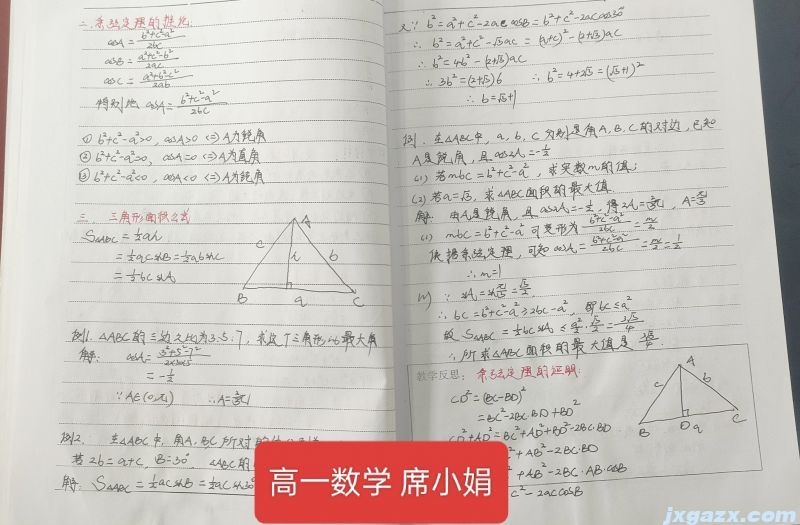 二、余弦定理的推论
cosA = (b²+c²-a²)/2bc
cosB = (a²+c²-b²)/2ac
cosC = (a²+b²-c²)/2ab
特别地 cosA = (b²+c²-a²)/2bc
① b²+c²-a²>0, cosA>0 <=> A为锐角
② b²+c²-a²=0, cosA=0 <=> A为直角
③ b²+c²-a²<0, cosA<0 <=> A为钝角
三、三角形面积公式
S△ABC = ½ah
= ½acsinB = ½absinC
= ½bcsinA
A
c h b
B a C
例1. △ABC的三边之比为3:5:7, 求这个三角形的最大角
解: cosA = (3²+5²-7²)/2×3×5
= -½
∵A∈(0,π) ∴A=⅔π
例2. 在△ABC中, 角A,B,C所对的
若2b=a+c, B=30°, △ABC的
解: S△ABC = ½acsinB = ½acsin30°
又∵ b²=a²+c²-2accosB=b²+c²-2accos30°
∴ b²=a²+c²-√3ac=(a+c)²-(2+√3)ac
∴ b²=4b²-(2+√3)ac
∴ 3b²=(2+√3)6 ∴ b²=4+2√3=(√3+1)²
∴ b=√3+1
例. 在△ABC中, a, b, c分别是角A,B,C的对边, 已知
A是锐角, 且cos2A=-½
(1) 若mbc=b²+c²-a², 求实数m的值;
(2) 若a=√3, 求△ABC面积的最大值
解: 由A是锐角, 且cos2A=-½, 得2A=⅔π, A=π/3
(1) mbc=b²+c²-a² 可变形为 (b²+c²-a²)/2bc = m/2
依据余弦定理, 可知cosA=(b²+c²-a²)/2bc=m/2=½
∴ m=1
∵ sinA=sinπ/3=√3/2,
∴ bc=b²+c²-a²≥2bc-a², 即bc≤a²
故S△ABC=½bcsinA≤a²/2·√3/2=3√3/4
∴所求△ABC面积的最大值是3√3/4.
教学反思: 余弦定理的证明:
CD²=(BC-BD)²
=BC²-2BC·BD+BD²
CD²+AD²=BC²+AD²+BD²-2BC·BD
+AB²-2BC·BD
+AB²-2BC·AB·cosB
c²-2accosB
A
c b
B D a C
高一数学 席小娟
jxgazx.com